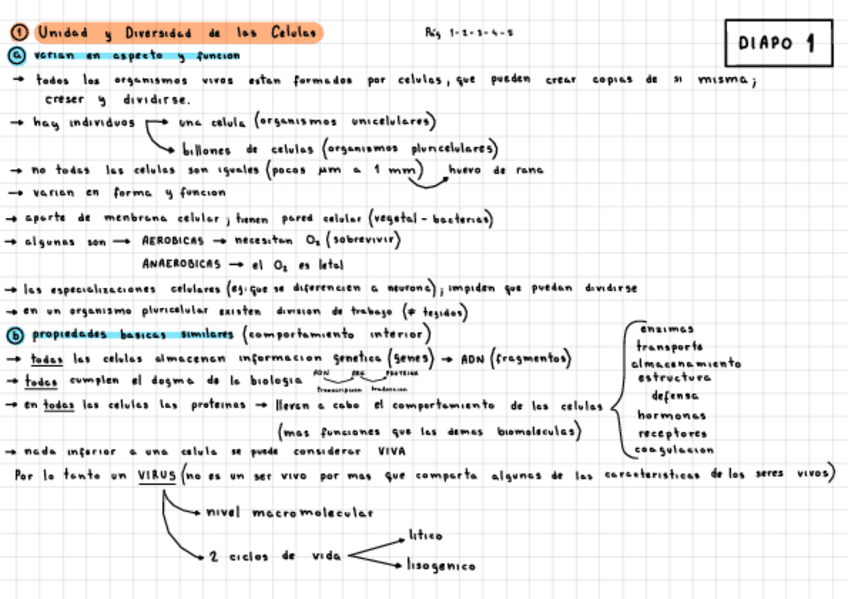 ① Unidad y Diversidad de las Celulas
Pág 1-2-3-4-5
DIAPO 1
ⓐ varian en aspecto y funcion
→ todos los organismos vivos estan formados por celulas, que pueden crear copias de si misma;
creser y dividirse.
→ hay individuos → una celula (organismos unicelulares)
billones de celulas (organismos pluricelulares)
→ no todas las celulas son iguales (pocos µm a 1 mm) huevo de rana
→ varian en forma y funcion
→ aparte de menbrana celular; tienen pared celular (vegetal - bacterias)
→ algunas son → AEROBICAS → necesitan O₂ (sobrevivir)
ANAEROBICAS → el O₂ es letal
→ las especializaciones celulares (ej: que se diferencien a neurona); impiden que puedan dividirse
→ en un organismo pluricelular existen division de trabajo (≠ tejidos)
ⓑ propiedades basicas similares (comportamiento interior)
→ todas las celulas almacenan informacion genetica (genes) → ADN (fragmentos)
→ todas cumplen el dogma de la biologia ADN ARN PROTEINA
transcripcion traduccion
→ en todas las celulas las proteinas → llevan a cabo el comportamiento de las celulas
(mas funciones que las demas biomoleculas)
enzimas
transporte
almacenamiento
estructura
defensa
hormonas
receptores
coagulacion
→ nada inferior a una celula se puede considerar VIVA
Por lo tanto un VIRUS (no es un ser vivo por mas que comparta algunas de las caracteristicas de los seres vivos)
nivel macromolecular
2 ciclos de vida
litico
lisogenico